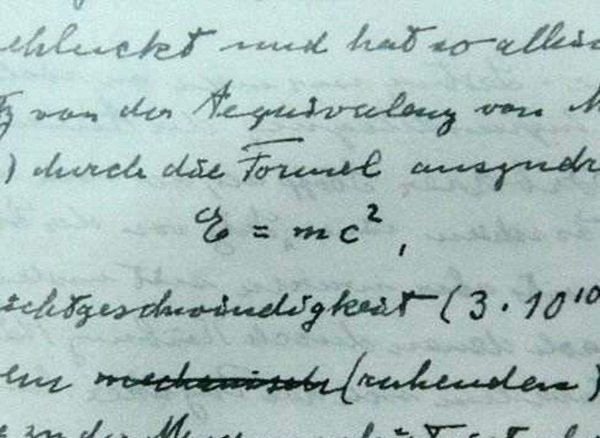 chluckt und hat so allein
von der Aequivalenz von M
) durch die Formel auszudr
E = mc²,
ichtgeschwindigkeit (3 . 10¹⁰
em mechanisch (ruhenden)